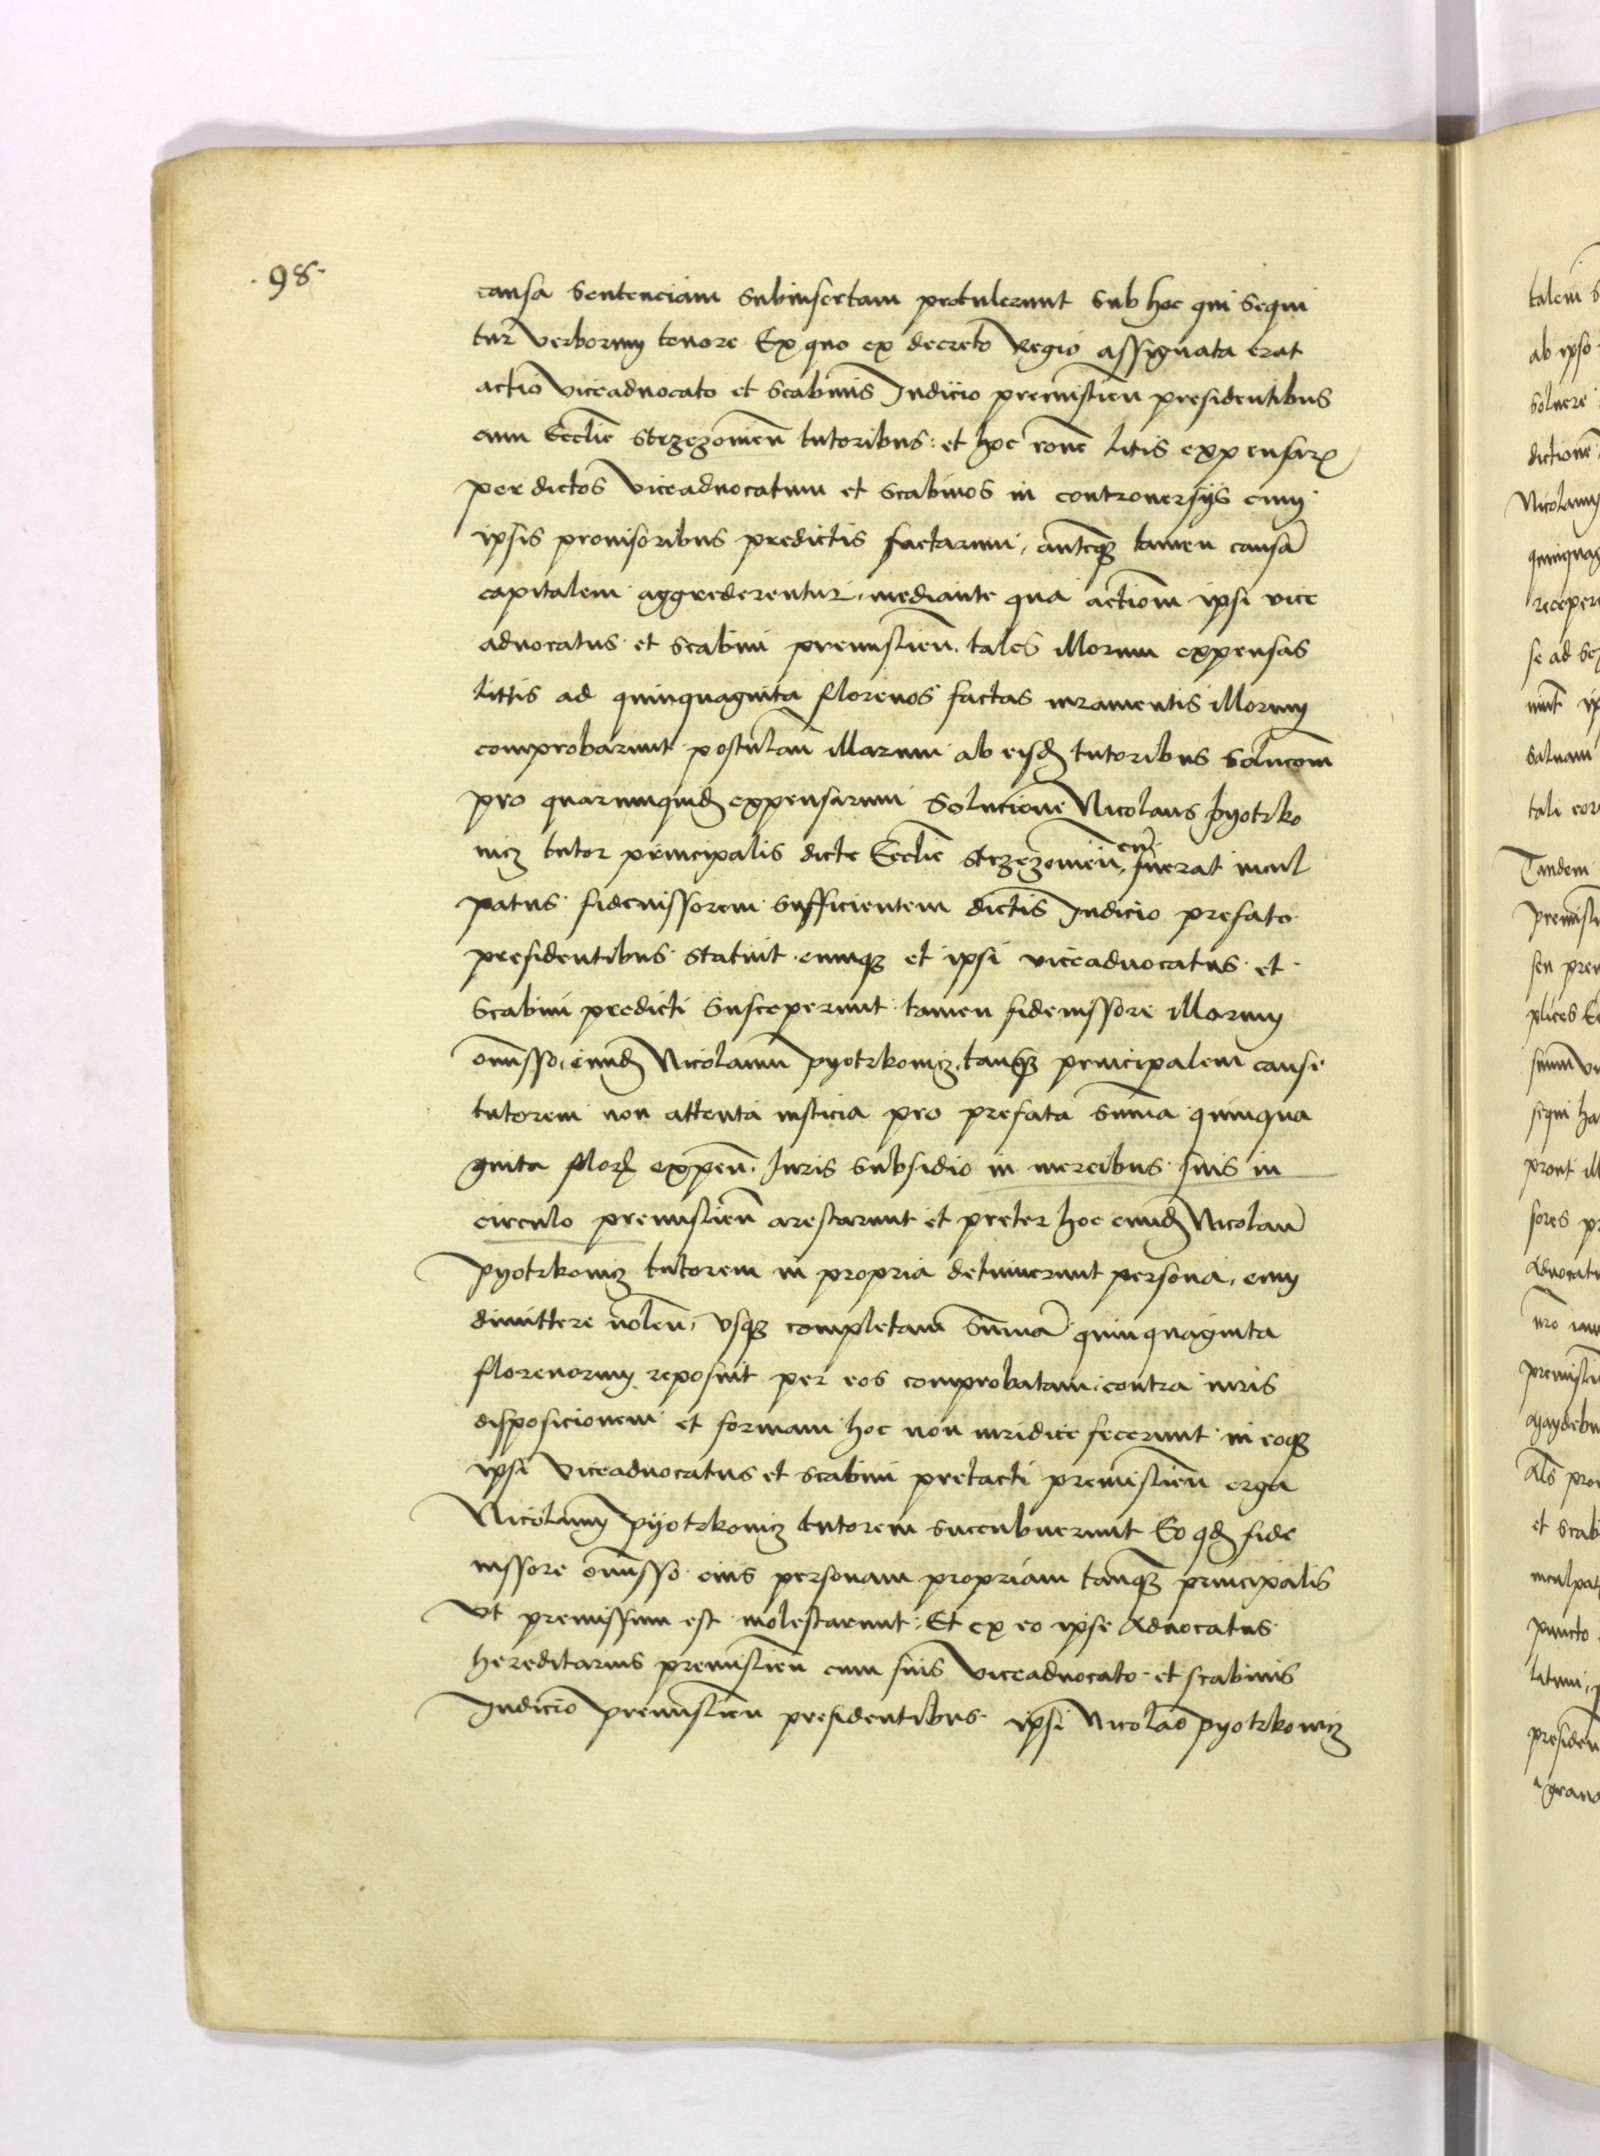 .98.
causa Sentenciam Subinsertam protulerunt Sub hoc qui Sequi
tur verborum tenore Ex quo ex decreto Regio assignata erat
actio viceadvocato et Scabinis Judicio premislien presidentibus
cum Ecclie Strzezomien tutoribus: et hoc rone litis expensarum
per dictos viceadvocatum et Scabinos in controversijs cum
ipsis provisoribus predictis factarum, anteq3 tamen causa
capitalem aggrederentur, mediante qua actiom ipsi vice
advocatus et Scabini premislien. tales illorum expensas
littis ad quinquaginta florenos factas iuramentis illorum
comprobarunt postulan illarum ab eisd tutoribus Solucom
pro quarumquid expensarum Solucione Nicolaus pyotrko
uicz tutor principalis dicte Ecclie Strzezomien, fuerat incul
patus fideiussorem Sufficientem dictis Judicio prefato
presidentibus statuit eumq3 et ipsi viceadvocatus et
Scabini predicti Susceperunt tamen fideiussore illorum
omisso, eund Nicolaum pyotrkouicz, tanq3 principalem cause
tutorem non attenta iusticia pro prefata Suma quinqua
ginta flor expen. Iuris Subsidio in mercibus suis in
circulo premislien arestarunt et preter hoc eund Nicolau
pyotrkouicz tutorem in propria detinuerunt persona, eum
dimittere nolen, vsq3 completam Suma quinquaginta
florenorum reposuit per eos comprobatam, contra iuris
disposicionem et formam hoc non iuridice fecerunt in eoq3
ipsi viceadvocatus et Scabini pretacti premislien erga
Nicolaum pyotrkouicz tutorem Succubuerunt Eo qd fide
iussore omisso eius personam propriam tanq3 principalis
vt premissum est molestarunt: Et ex eo ipse Advocatus
hereditarius premislien cum suis viceadvocato et scabinis
Judicio premislien presidentibus ipsi Nicolao pyotrkouicz